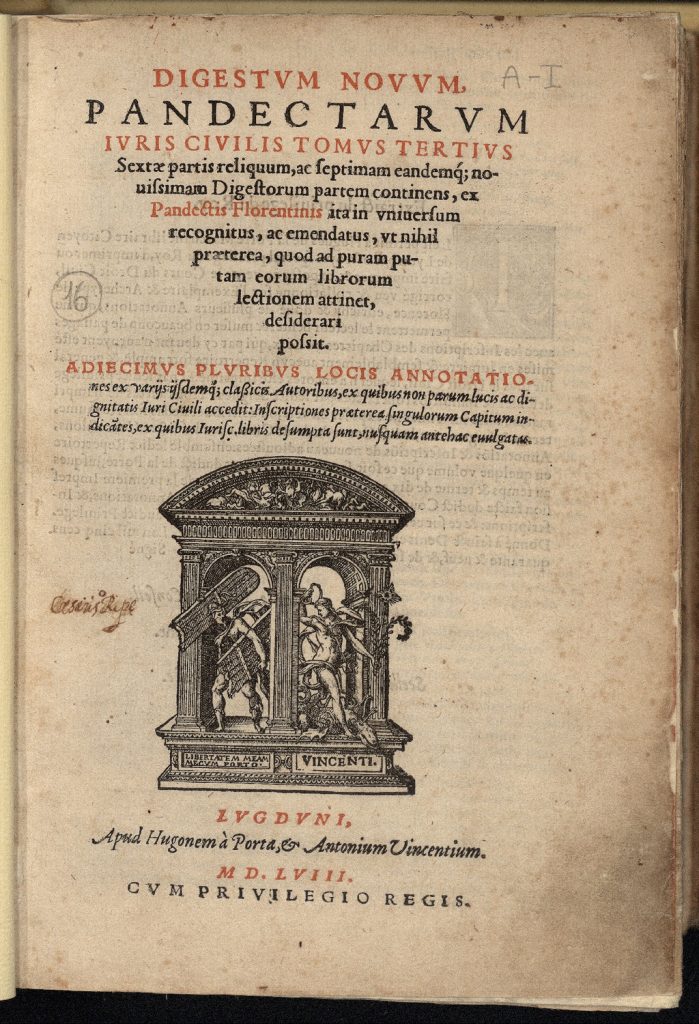 A-I
DIGESTVM NOVVM,
PANDECTARVM
IVRIS CIVILIS TOMVS TERTIVS
Sextæ partis reliquum, ac septimam eandemq́; no-
uissimam Digestorum partem continens, ex
Pandectis Florentinis ita in vniuersum
recognitus, ac emendatus, vt nihil
præterea, quod ad puram pu-
tam eorum librorum
lectionem attinet,
desiderari
possit.
16
ADIECIMVS PLVRIBVS LOCIS ANNOTATIO-
nes ex varijs ijsdemq́; classicis Autoribus, ex quibus non parum lucis ac di-
gnitatis Iuri Ciuili accedit: Inscriptiones præterea singulorum Capitum in-
dicātes, ex quibus Iurisc. libris desumpta sunt, nusquam antehac euulgatas.
LIBERTATEM MEAM
MECVM PORTO.
VINCENTI.
LVGDVNI,
Apud Hugonem à Porta, & Antonium Vincentium.
M D. LVIII.
CVM PRIVILEGIO REGIS.